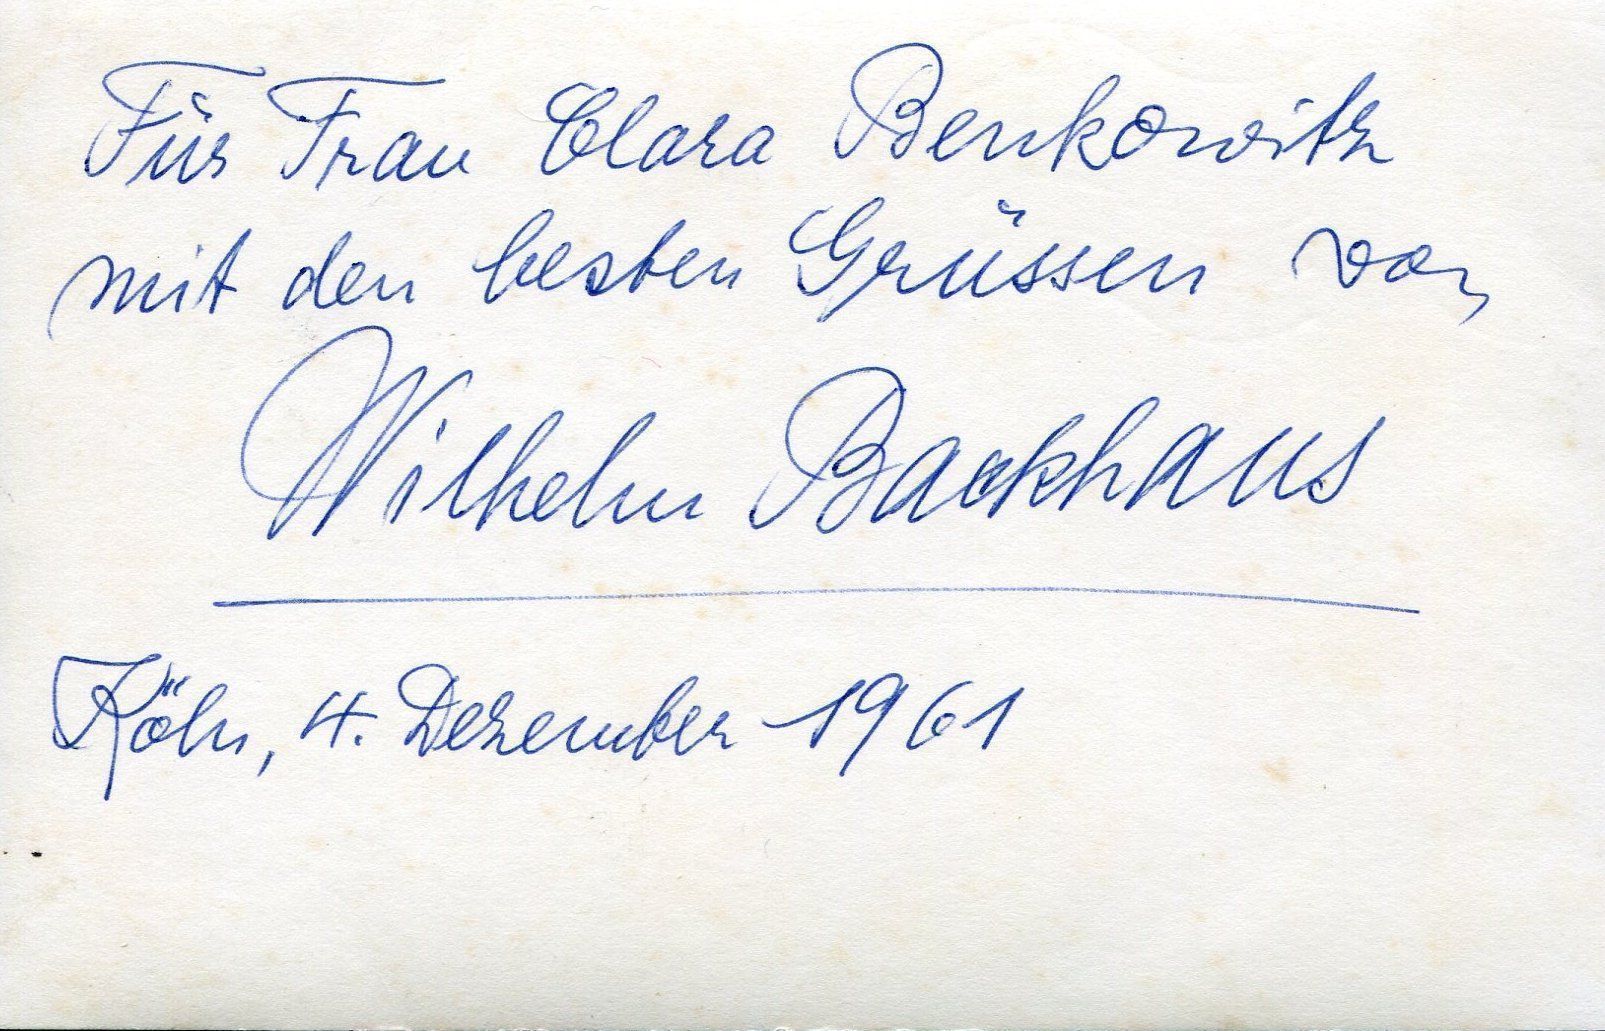 Für Frau Clara Benkowitz
mit den besten Grüssen von
Wilhelm Backhaus
Köln, 4. Dezember 1961